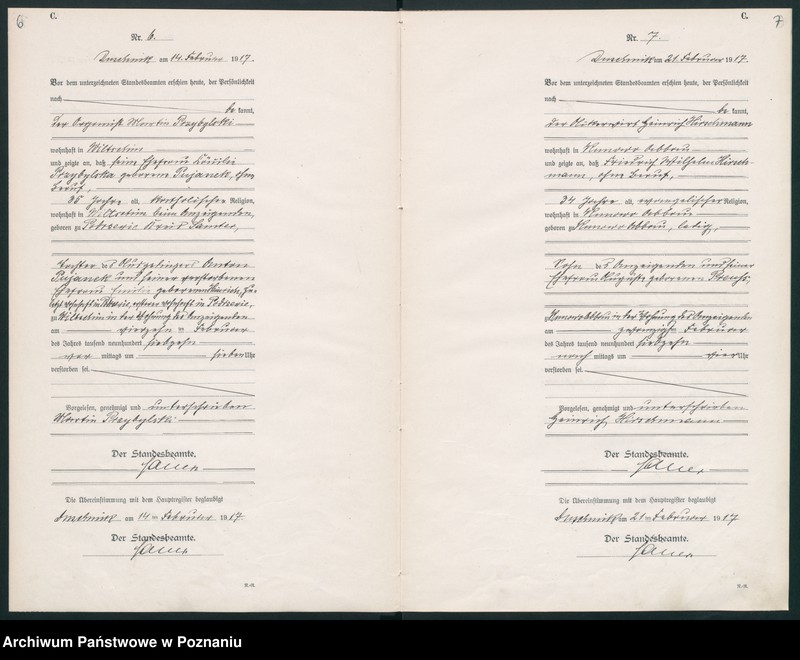 6
C.
Nr. 6.
am 14. Februar 1917.
Vor dem unterzeichneten Standesbeamten erschien heute, der Persönlichkeit
nach
be kannt,
der Organist Martin Przybylski
wohnhaft in
und zeigte an, daß seine Ehefrau
Przybylska geborene Pujanek, ohne
Beruf,
35 Jahre alt, katholischer Religion,
wohnhaft in beim Anzeigenden,
geboren zu Kreis Samter,
Tochter des Anton
Pujanek und seiner verstorbenen
Ehefrau geborenen
zu in der Wohnung des Anzeigenden
am vierzehn ten Februar
des Jahres tausend neunhundert siebzehn
vor mittags um sieben Uhr
verstorben sei.
Vorgelesen, genehmigt und unterschrieben
Martin Przybylski
Der Standesbeamte.
Die Übereinstimmung mit dem Hauptregister beglaubigt
am 14 ten Februar 1917.
Der Standesbeamte.
7
C.
Nr. 7.
am 21. Februar 1917.
Vor dem unterzeichneten Standesbeamten erschien heute, der Persönlichkeit
nach
be kannt,
der Heinrich Hirschmann
wohnhaft in
und zeigte an, daß Friedrich Wilhelm Hirsch-
mann, ohne Beruf,
34 Jahre alt, evangelischer Religion,
wohnhaft in
geboren zu ledig,
Sohn des Anzeigenden und seiner
Ehefrau Auguste geborenen
in der Wohnung des Anzeigenden
am zwanzigsten Februar
des Jahres tausend neunhundert siebzehn
nach mittags um vier Uhr
verstorben sei.
Vorgelesen, genehmigt und unterschrieben
Heinrich Hirschmann
Der Standesbeamte.
Die Übereinstimmung mit dem Hauptregister beglaubigt
am 21 ten Februar 1917
Der Standesbeamte.
Archiwum Państwowe w Poznaniu